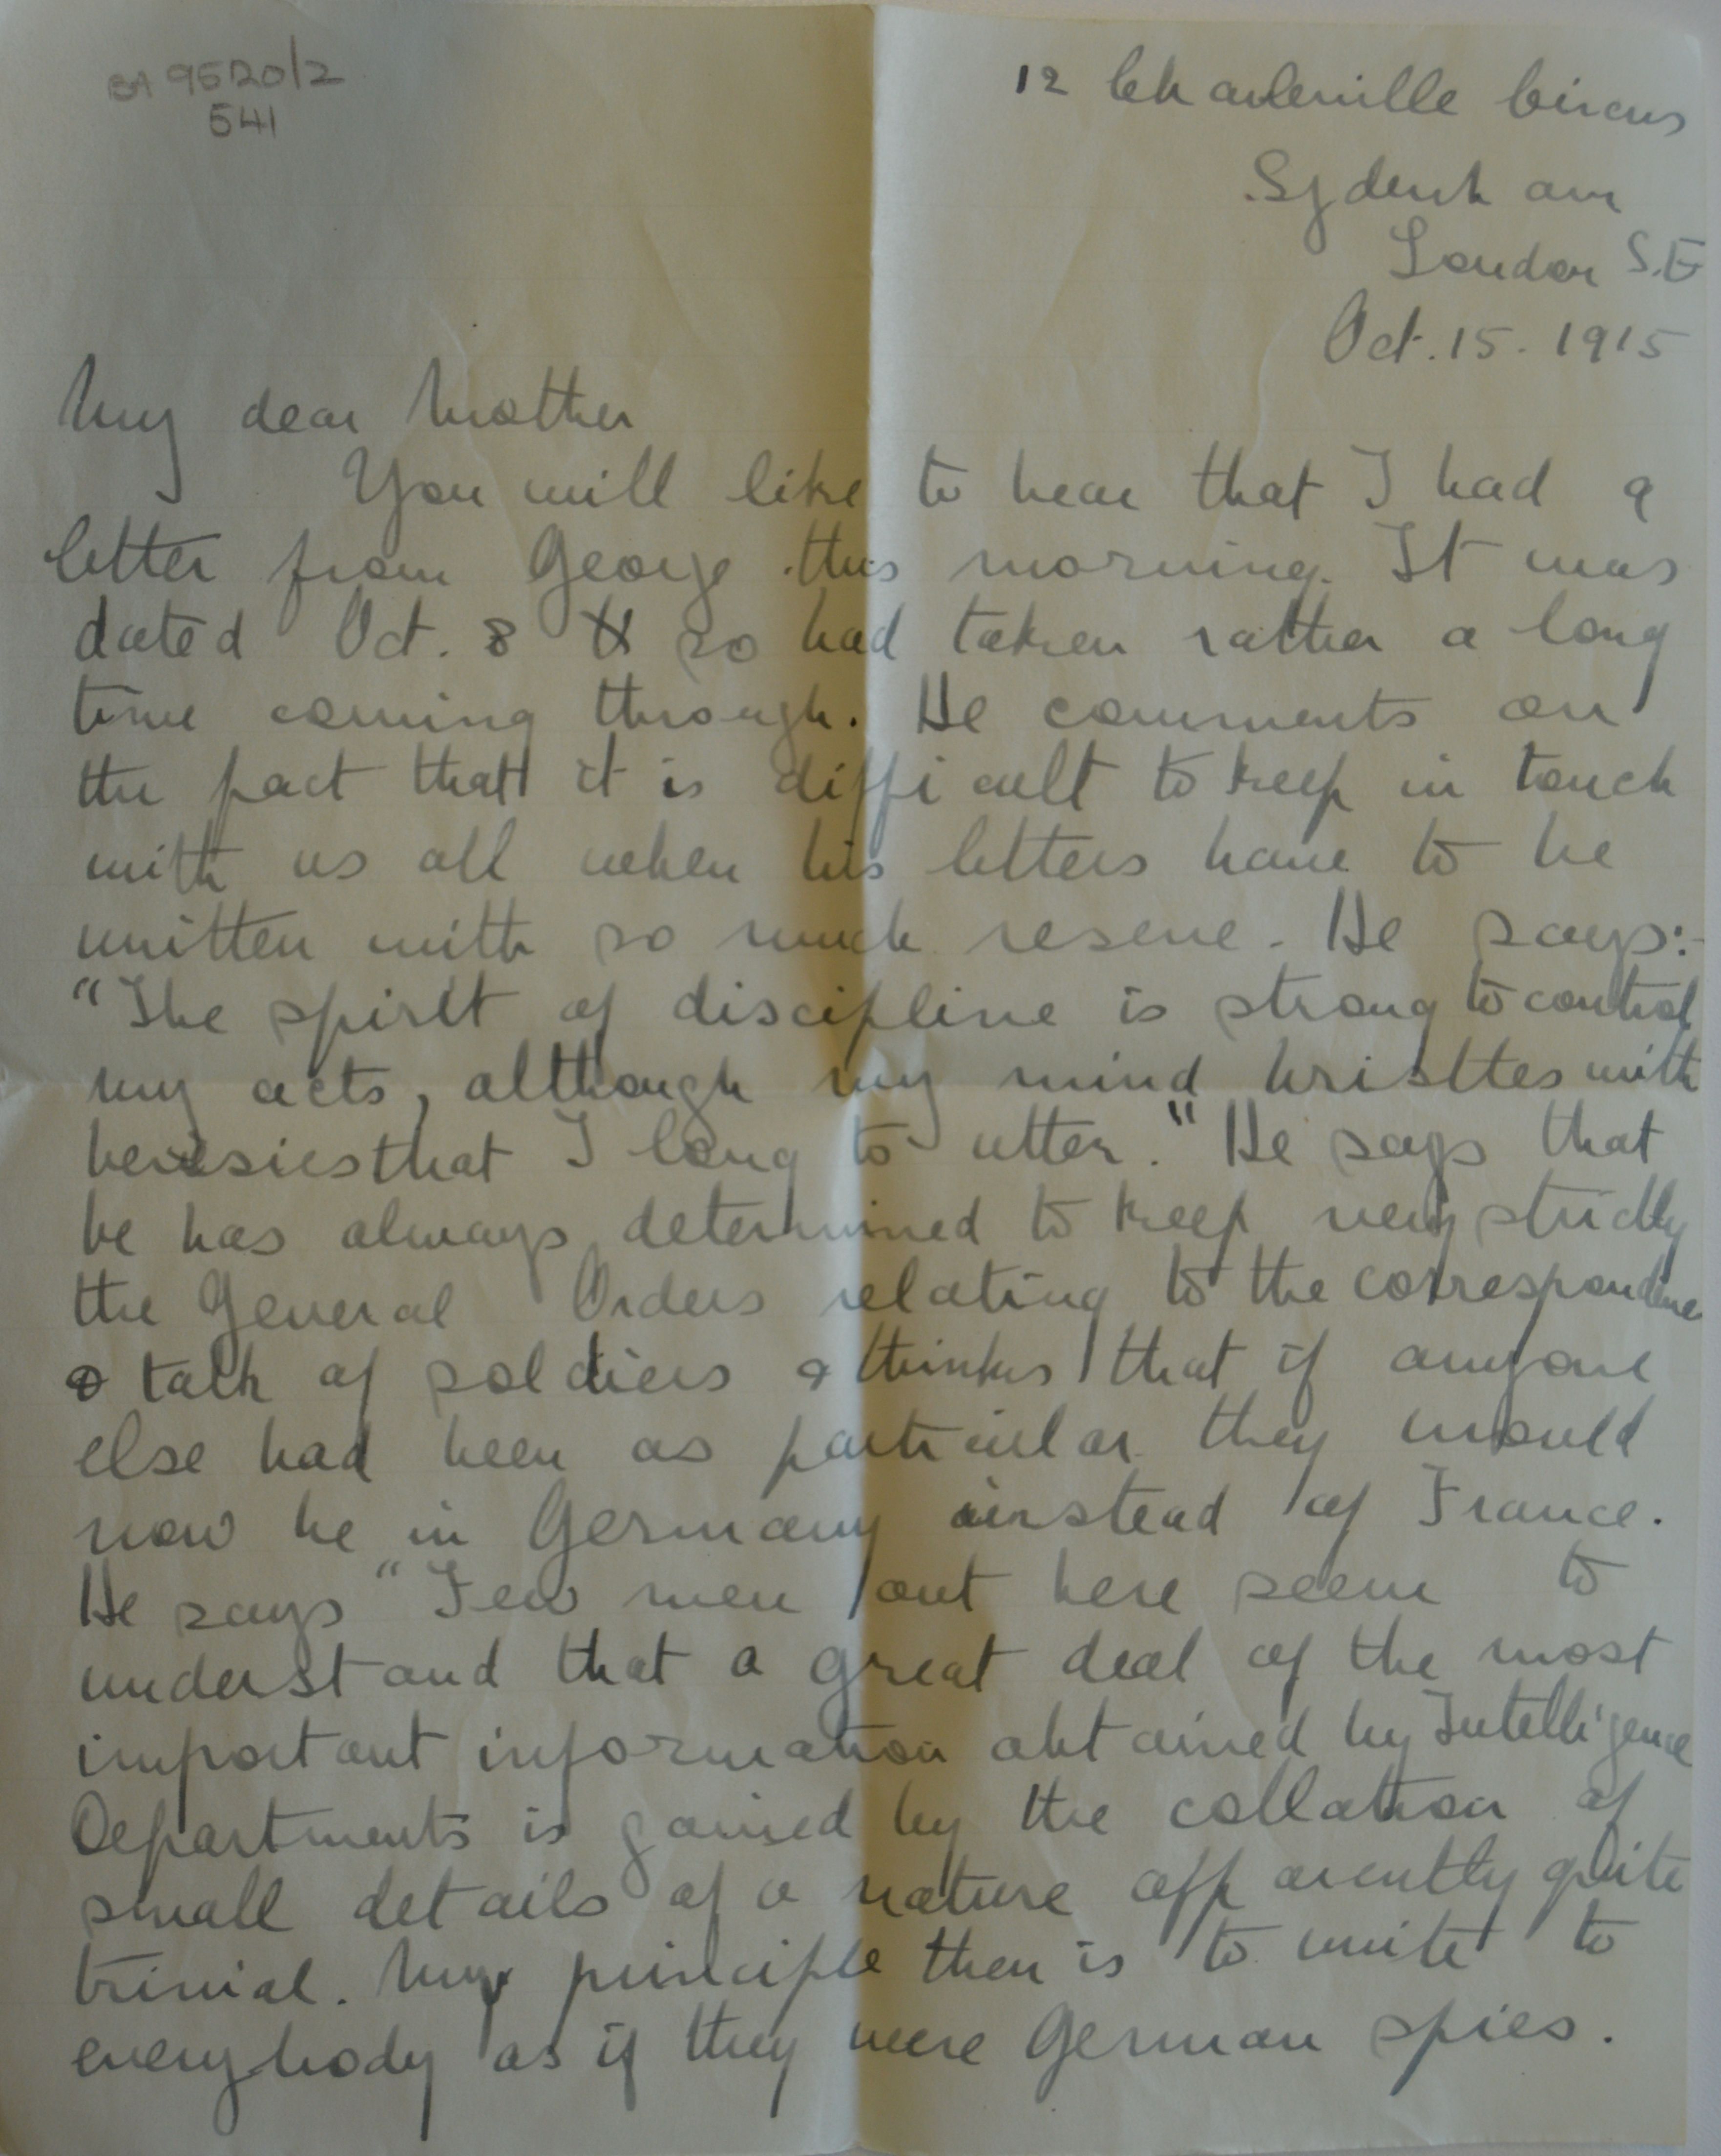 BA 9520/2
541
12 Charleville Circus
Sydenham
London S.E
Oct. 15. 1915
My dear Mother
You will like to hear that I had a
letter from George this morning. It was
dated Oct. 8 & so had taken rather a long
time coming through. He comments on
the fact that it is difficult to keep in touch
with us all when his letters have to be
written with so much reserve. He says:-
"The spirit of discipline is strong to control
my acts, although my mind bristles with
heresies that I long to utter." He says that
he has always determined to keep very strictly
the General Orders relating to the correspondence
& talk of soldiers & thinks that if anyone
else had been as particular they would
now be in Germany instead of France.
He says "Few men out here seem to
understand that a great deal of the most
important information obtained by Intelligence
Departments is gained by the collation of
small details of a nature apparently quite
trivial. My principle then is to write to
everybody as if they were German spies.